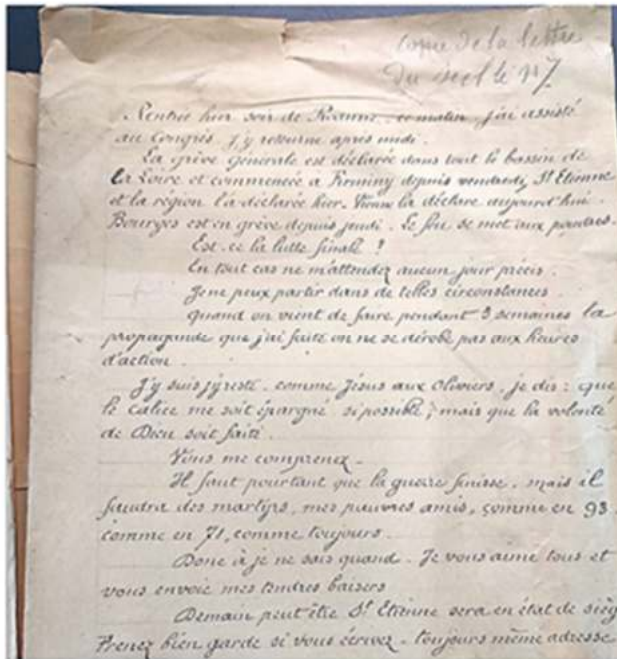 copie de la lettre
du scellé n° 7
Rentrée hier soir de Roanne. ce matin j'ai assisté
au Congrès. J'y retourne après midi.
La grève générale est déclarée dans tout le bassin de
la Loire et commencée à Firminy depuis vendredi, St Etienne
et la région l'a déclarée hier. Vienne la déclare aujourd'hui.
Bourges est en grève depuis jeudi. Le feu se met aux poudres.
Est-ce la lutte finale ?
En tout cas ne m'attendez aucun jour précis.
Je ne peux partir dans de telles circonstances.
Quand on vient de faire pendant 3 semaines la
propagande que j'ai faite on ne se dérobe pas aux heures
d'action.
J'y suis j'y reste. comme Jésus aux Oliviers, je dis : que
le calice me soit épargné si possible, mais que la volonté
de Dieu soit faite.
Vous me comprenez.
Il faut pourtant que la guerre finisse. mais il
faudra des martyrs, mes pauvres amis, comme en 93
comme en 71, comme toujours.
Donc à je ne sais quand. Je vous aime tous et
vous envoie mes tendres baisers
Demain peut être St Etienne sera en état de sièg
Prenez bien garde si vous écrivez - toujours même adresse